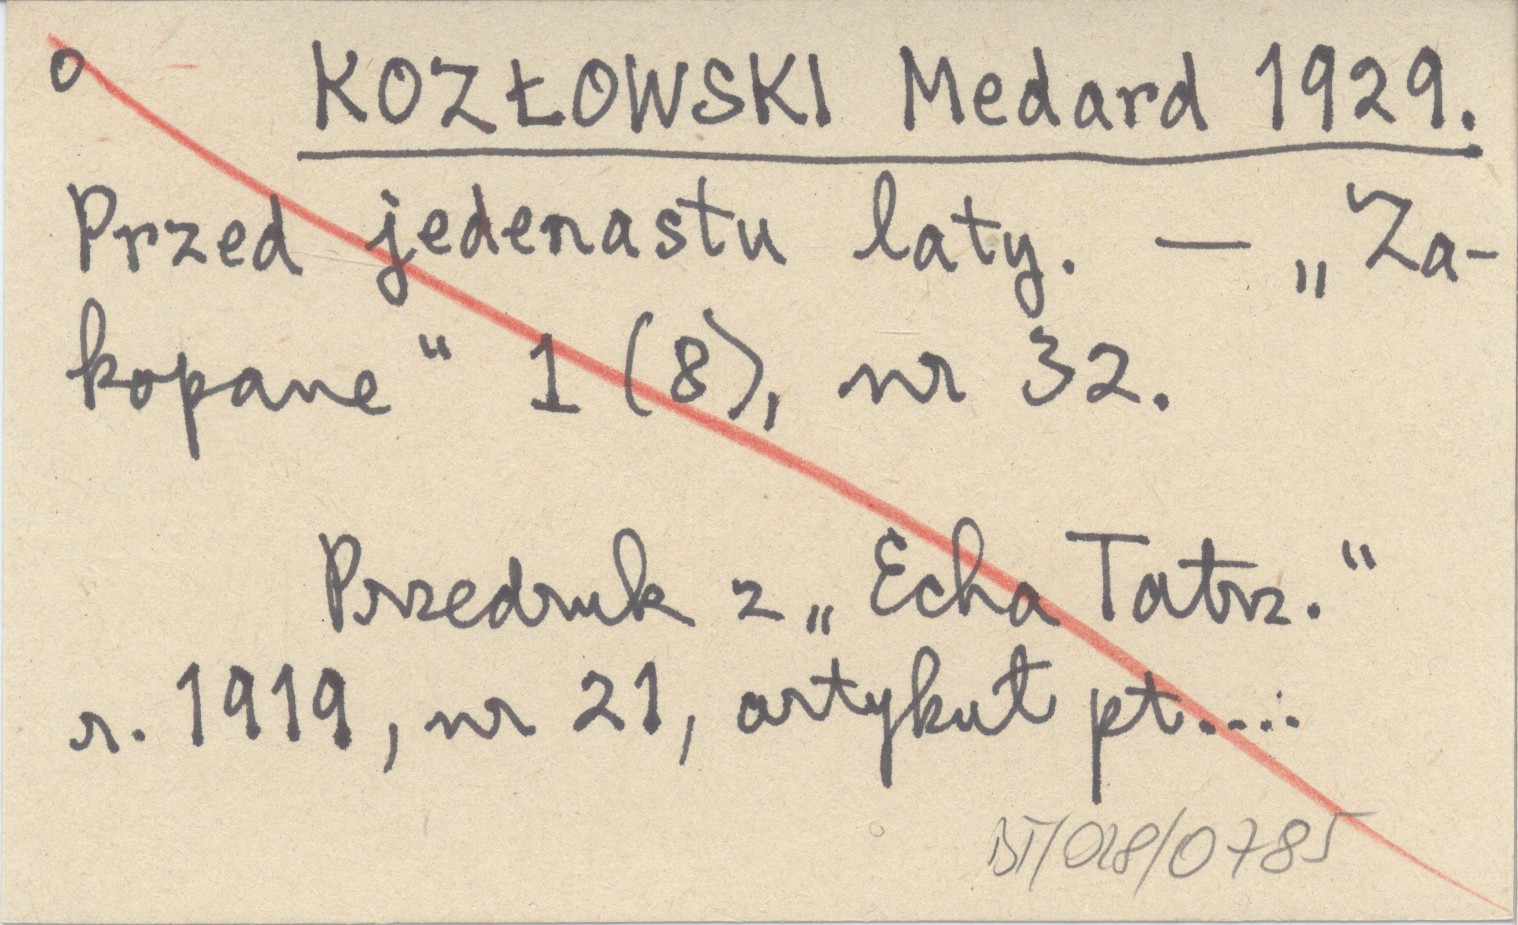 o KOZŁOWSKI Medard 1929.
Przed jedenastu laty. — „Za-
kopane" 1 (8), nr 32.
Przedruk z „Echa Tatrz."
r. 1919, nr 21, artykuł pt....
BT/018/0785